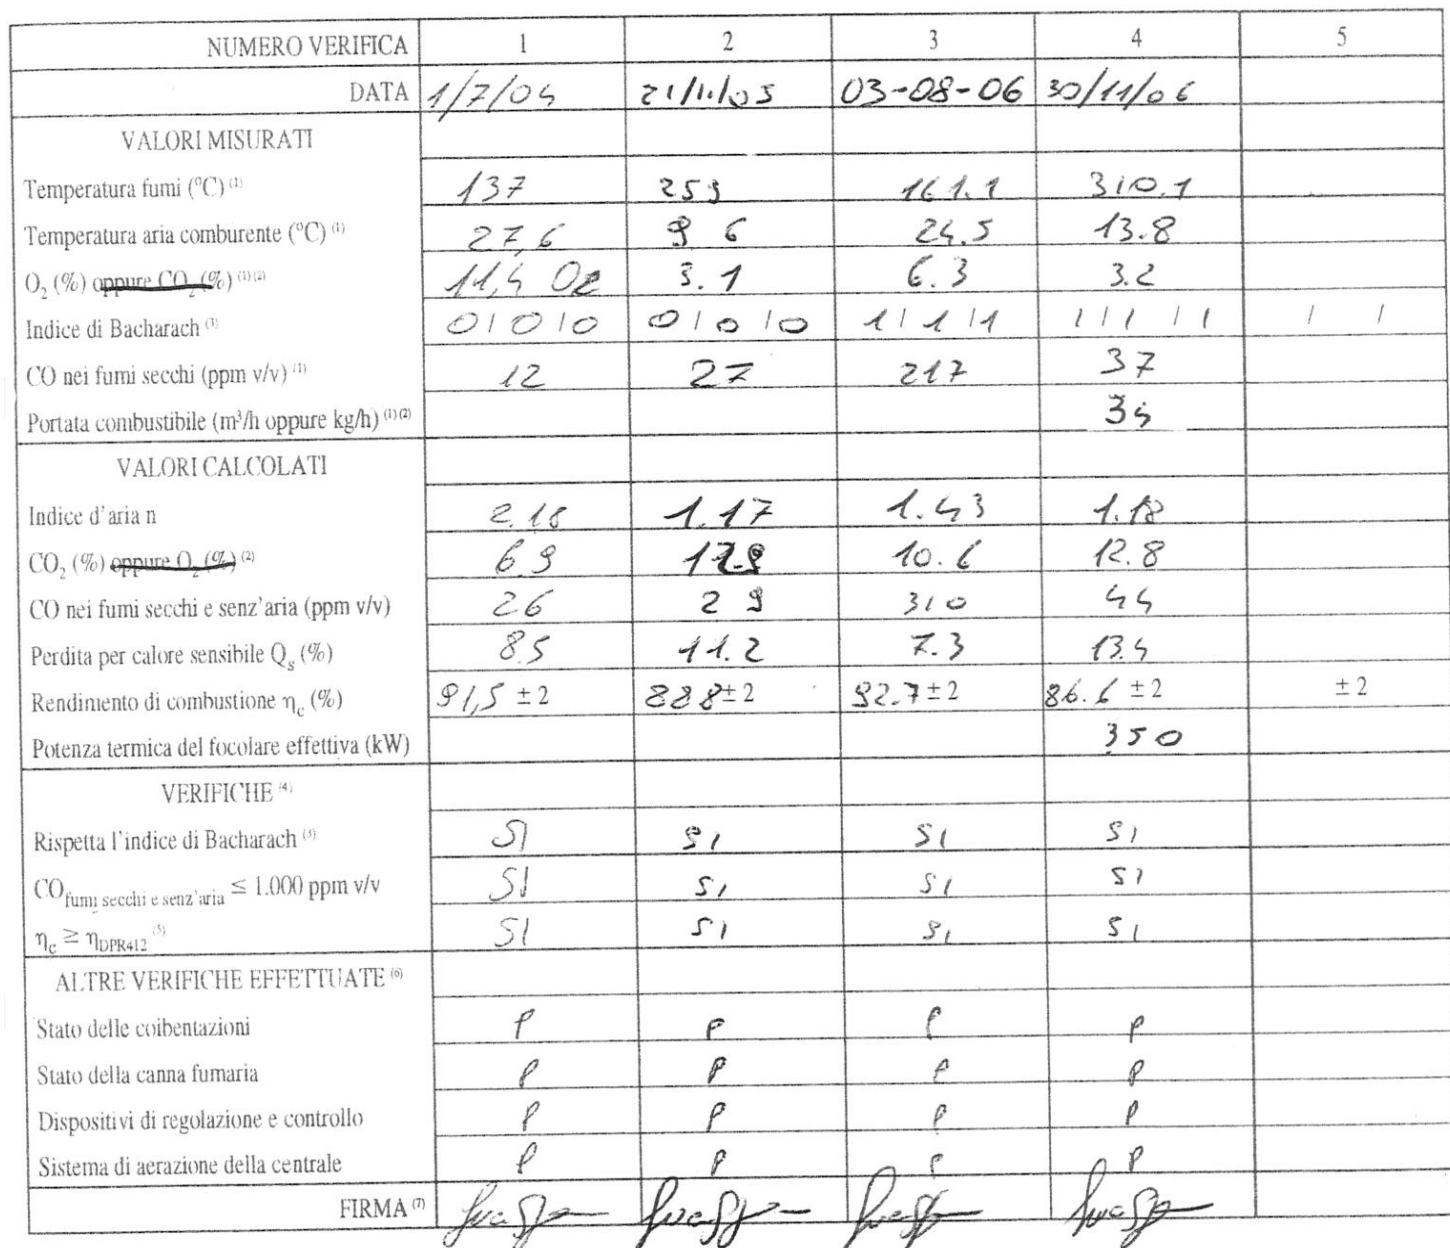 NUMERO VERIFICA 1 2 3 4 5
DATA 1/7/04 21/11/05 03-08-06 30/11/06
VALORI MISURATI
Temperatura fumi (°C) (1) 137 259 161.1 310.1
Temperatura aria comburente (°C) (1) 27,6 9 6 24.5 13.8
O₂ (%) oppure CO₂ (%) (1)(2) 11,4 O2 3.1 6.3 3.2
Indice di Bacharach (3) 0/0/0 0/0/0 1/1/1 1/1/1 / /
CO nei fumi secchi (ppm v/v) (1) 12 27 217 37
Portata combustibile (m³/h oppure kg/h) (1)(2) 34
VALORI CALCOLATI
Indice d'aria n 2.18 1.17 1.43 1.18
CO₂ (%) oppure O₂ (%) (2) 6 9 12.9 10.6 12.8
CO nei fumi secchi e senz'aria (ppm v/v) 26 2 9 310 44
Perdita per calore sensibile Qs (%) 8.5 11.2 7.3 13.4
Rendimento di combustione ηc (%) 91,5 ± 2 88.8 ± 2 92.7 ± 2 86.6 ± 2 ± 2
Potenza termica del focolare effettiva (kW) 350
VERIFICHE (4)
Rispetta l'indice di Bacharach (5) SI SI SI SI
CO fumi secchi e senz'aria ≤ 1.000 ppm v/v SI SI SI SI
ηc ≥ ηDPR412 (5) SI SI SI SI
ALTRE VERIFICHE EFFETTUATE (6)
Stato delle coibentazioni P P P P
Stato della canna fumaria P P P P
Dispositivi di regolazione e controllo P P P P
Sistema di aerazione della centrale P P P P
FIRMA (7)